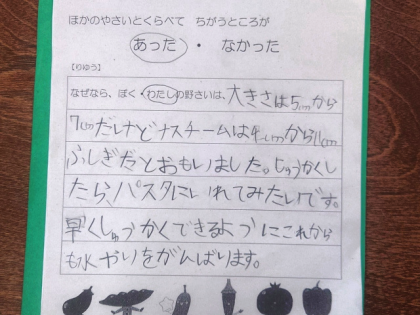 ほかのやさいとくらべて ちがうところが
あった ・ なかった
【りゆう】
なぜなら、ぼく・わたしの野さいは、大きさは5cmから
7cmだけどナスチームは4cmから11cm
ふしぎだとおもいました。しゅうかくし
たら、パスタにいれてみたいです。
早くしゅうかくできるようにこれから
も水やりをがんばります。